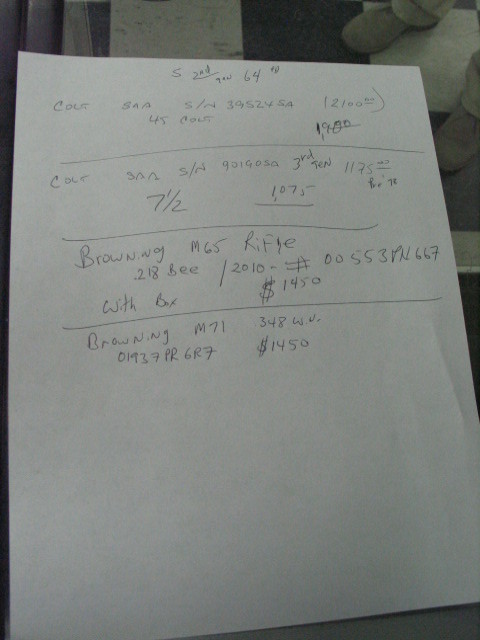 S 2nd gen 64
COLT SAA S/N 39524SA (2100.00)
45 COLT 1,900
COLT SAA S/N 90190SA 3rd GEN 1175.00
7 1/2 1,075 thru 78
Browning M65 Rifle
.218 Bee / 2010 - # 00553PN667
With Box $1450
Browning M71 348 WIN.
01937PR6R7 $1450